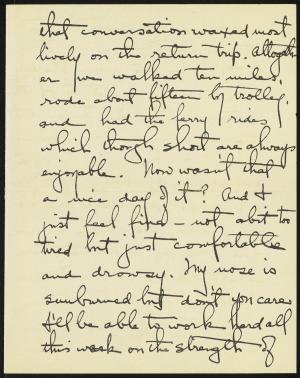 that conversation waxed most
lively on the return trip. Altogeth-
er we walked ten miles,
rode about fifteen by trolley,
and had the ferry rides
which though short are always
enjoyable. Now wasn't that
a nice day of it? And I
just feel fine - not a bit too
tired but just comfortable
and drowsy. My nose is
sunburned but don't you care
I'll be able to work hard all
this week on the strength of